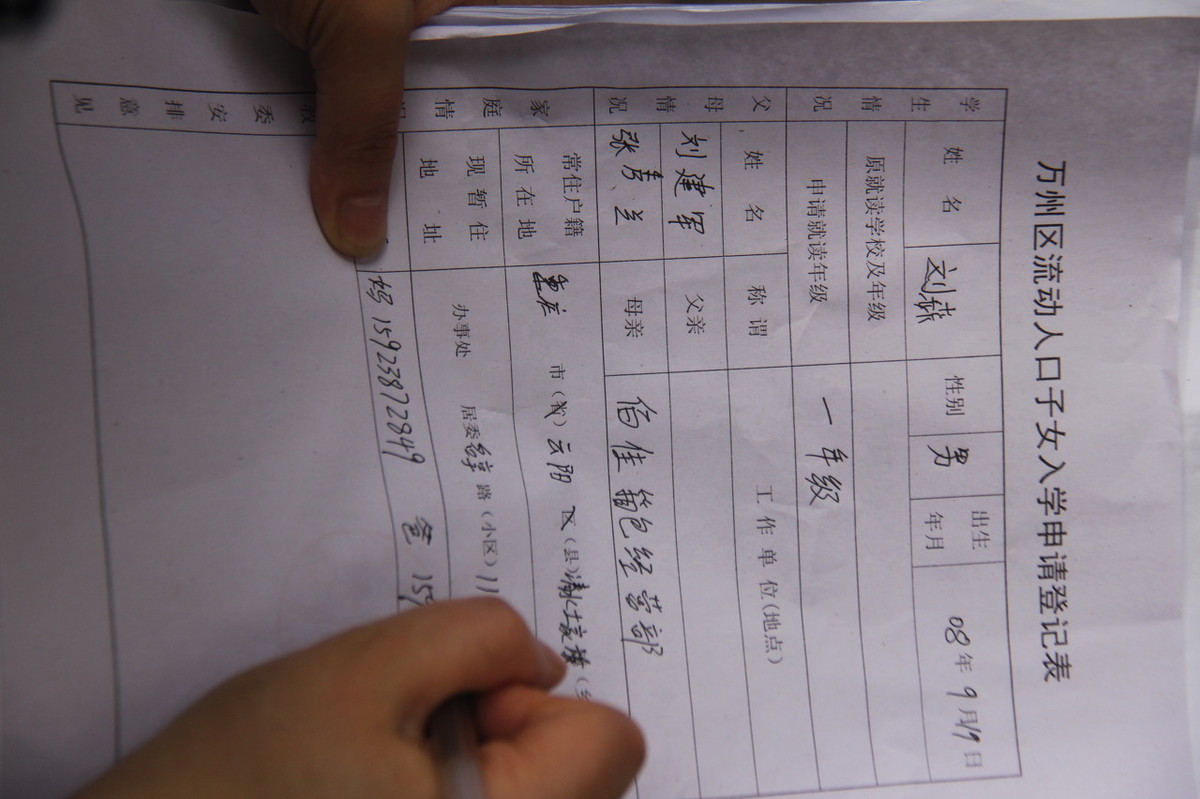 万州区流动人口子女入学申请登记表
学生情况 姓名 刘 性别 男 出生年月 08年9月19日
原就读学校及年级
申请就读年级 一年级
父母情况 姓名 称谓 工作单位(地点)
刘建军 父亲
张 兰 母亲 佰佳箱包经营部
家庭情 常住户籍所在地 重庆 市(省) 云阳 区(县)
现暂住地址 办事处 居委 路(小区) 11
妈 15923872849 爸 159
委安排意见